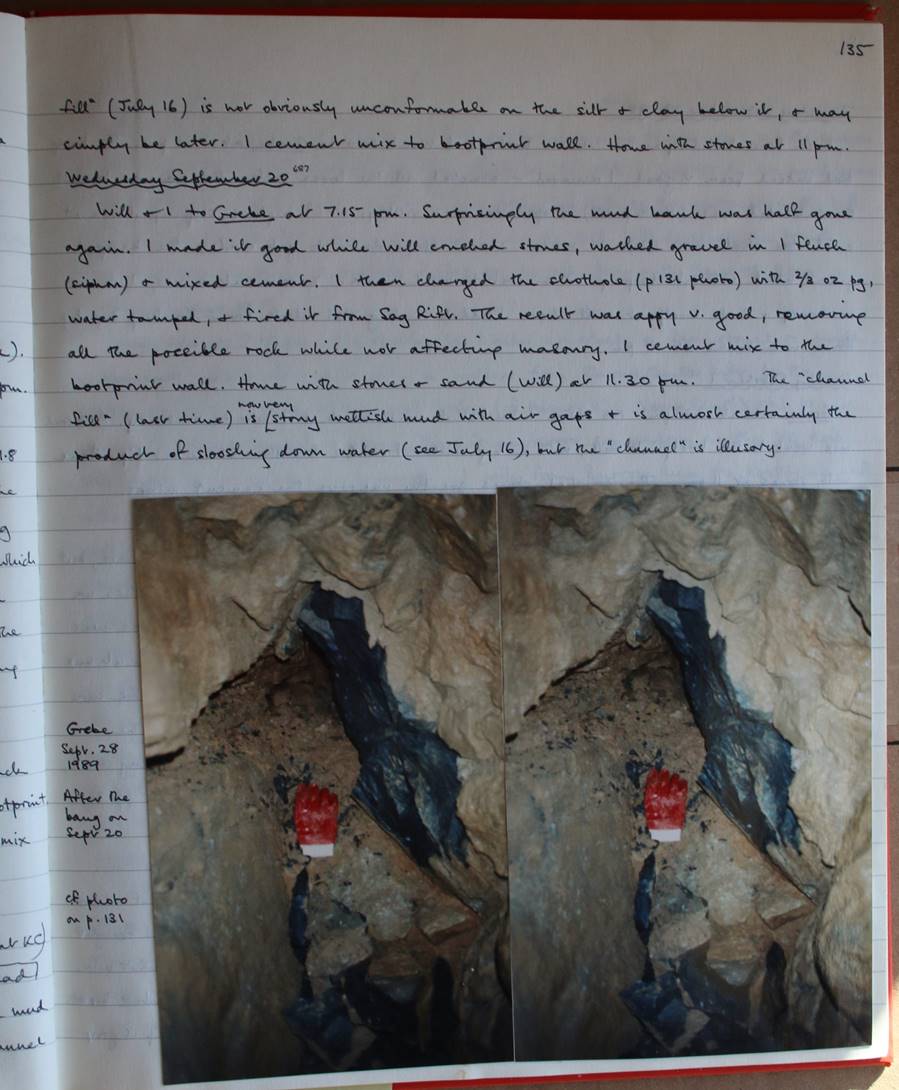 135
fill" (July 16) is not obviously unconformable on the silt & clay below it, & may
simply be later. 1 cement mix to bootprint wall. Home with stones at 11 pm.
Wednesday September 20 687
Will & I to Grebe at 7.15 pm. Surprisingly the mud bank was half gone
again. I made it good while Will crushed stones, washed gravel in 1 flush
(siphon) & mixed cement. I then charged the shothole (p 131 photo) with 2/3 oz pg,
water tamped, & fired it from Sag Rift. The result was appy v. good, removing
all the possible rock while not affecting masonry. 1 cement mix to the
bootprint wall. Home with stones & sand (Will) at 11.30 pm. The "channel
now very
fill" (last time) is [stony wettish mud with air gaps & is almost certainly the
product of slooshing down water (see July 16), but the "channel" is illusory.
Grebe
Sept. 28
1989
After the
bang on
Sept 20
cf photo
on p. 131